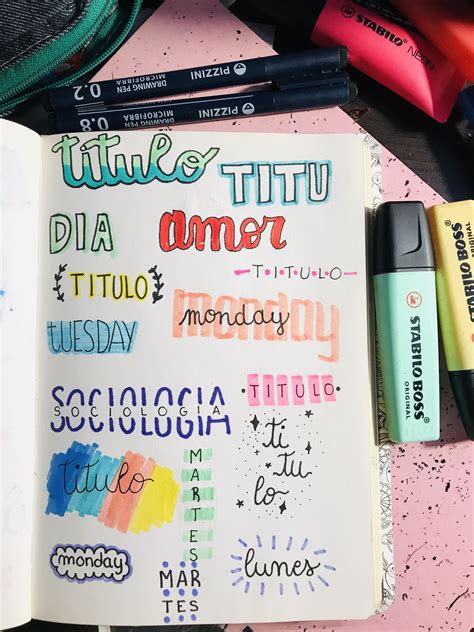 STABILO
NEON
0.2 DRAWING PEN MICROFIBRA PIZZINI
0.8 DRAWING PEN MICROFIBRA PIZZINI
título
TITU
DIA
amor
TITULO
TITULO
TUESDAY
monday
monday
SOCIOLOGIA
SOCIOLOGIA
TITULO
ti
tu
lo
titulo
MARTES
monday
MAR
TES
lunes
STABILO BOSS
ORIGINAL
STABILO BOSS
ORIGINAL